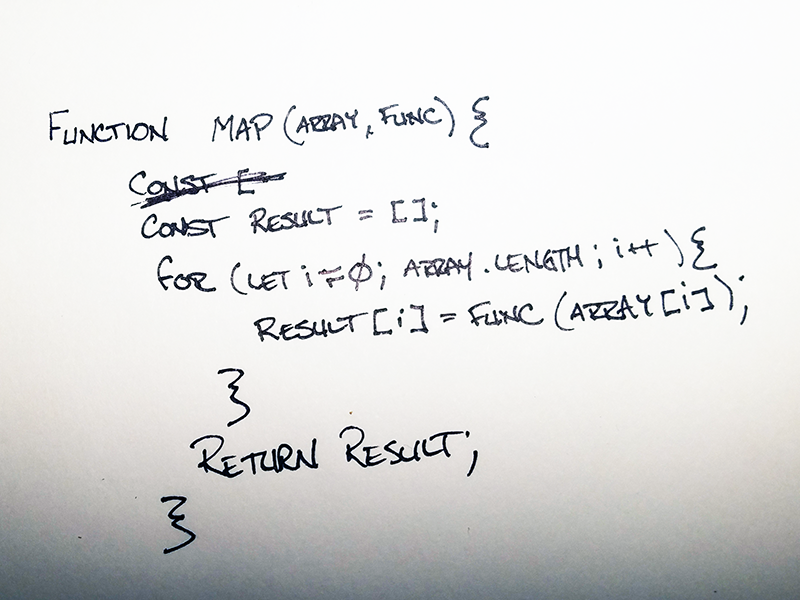 FUNCTION MAP (ARRAY, FUNC) {
CONST [
CONST RESULT = [];
FOR (LET i=0; ARRAY.LENGTH; i++){
RESULT[i] = FUNC (ARRAY[i]);
}
RETURN RESULT;
}